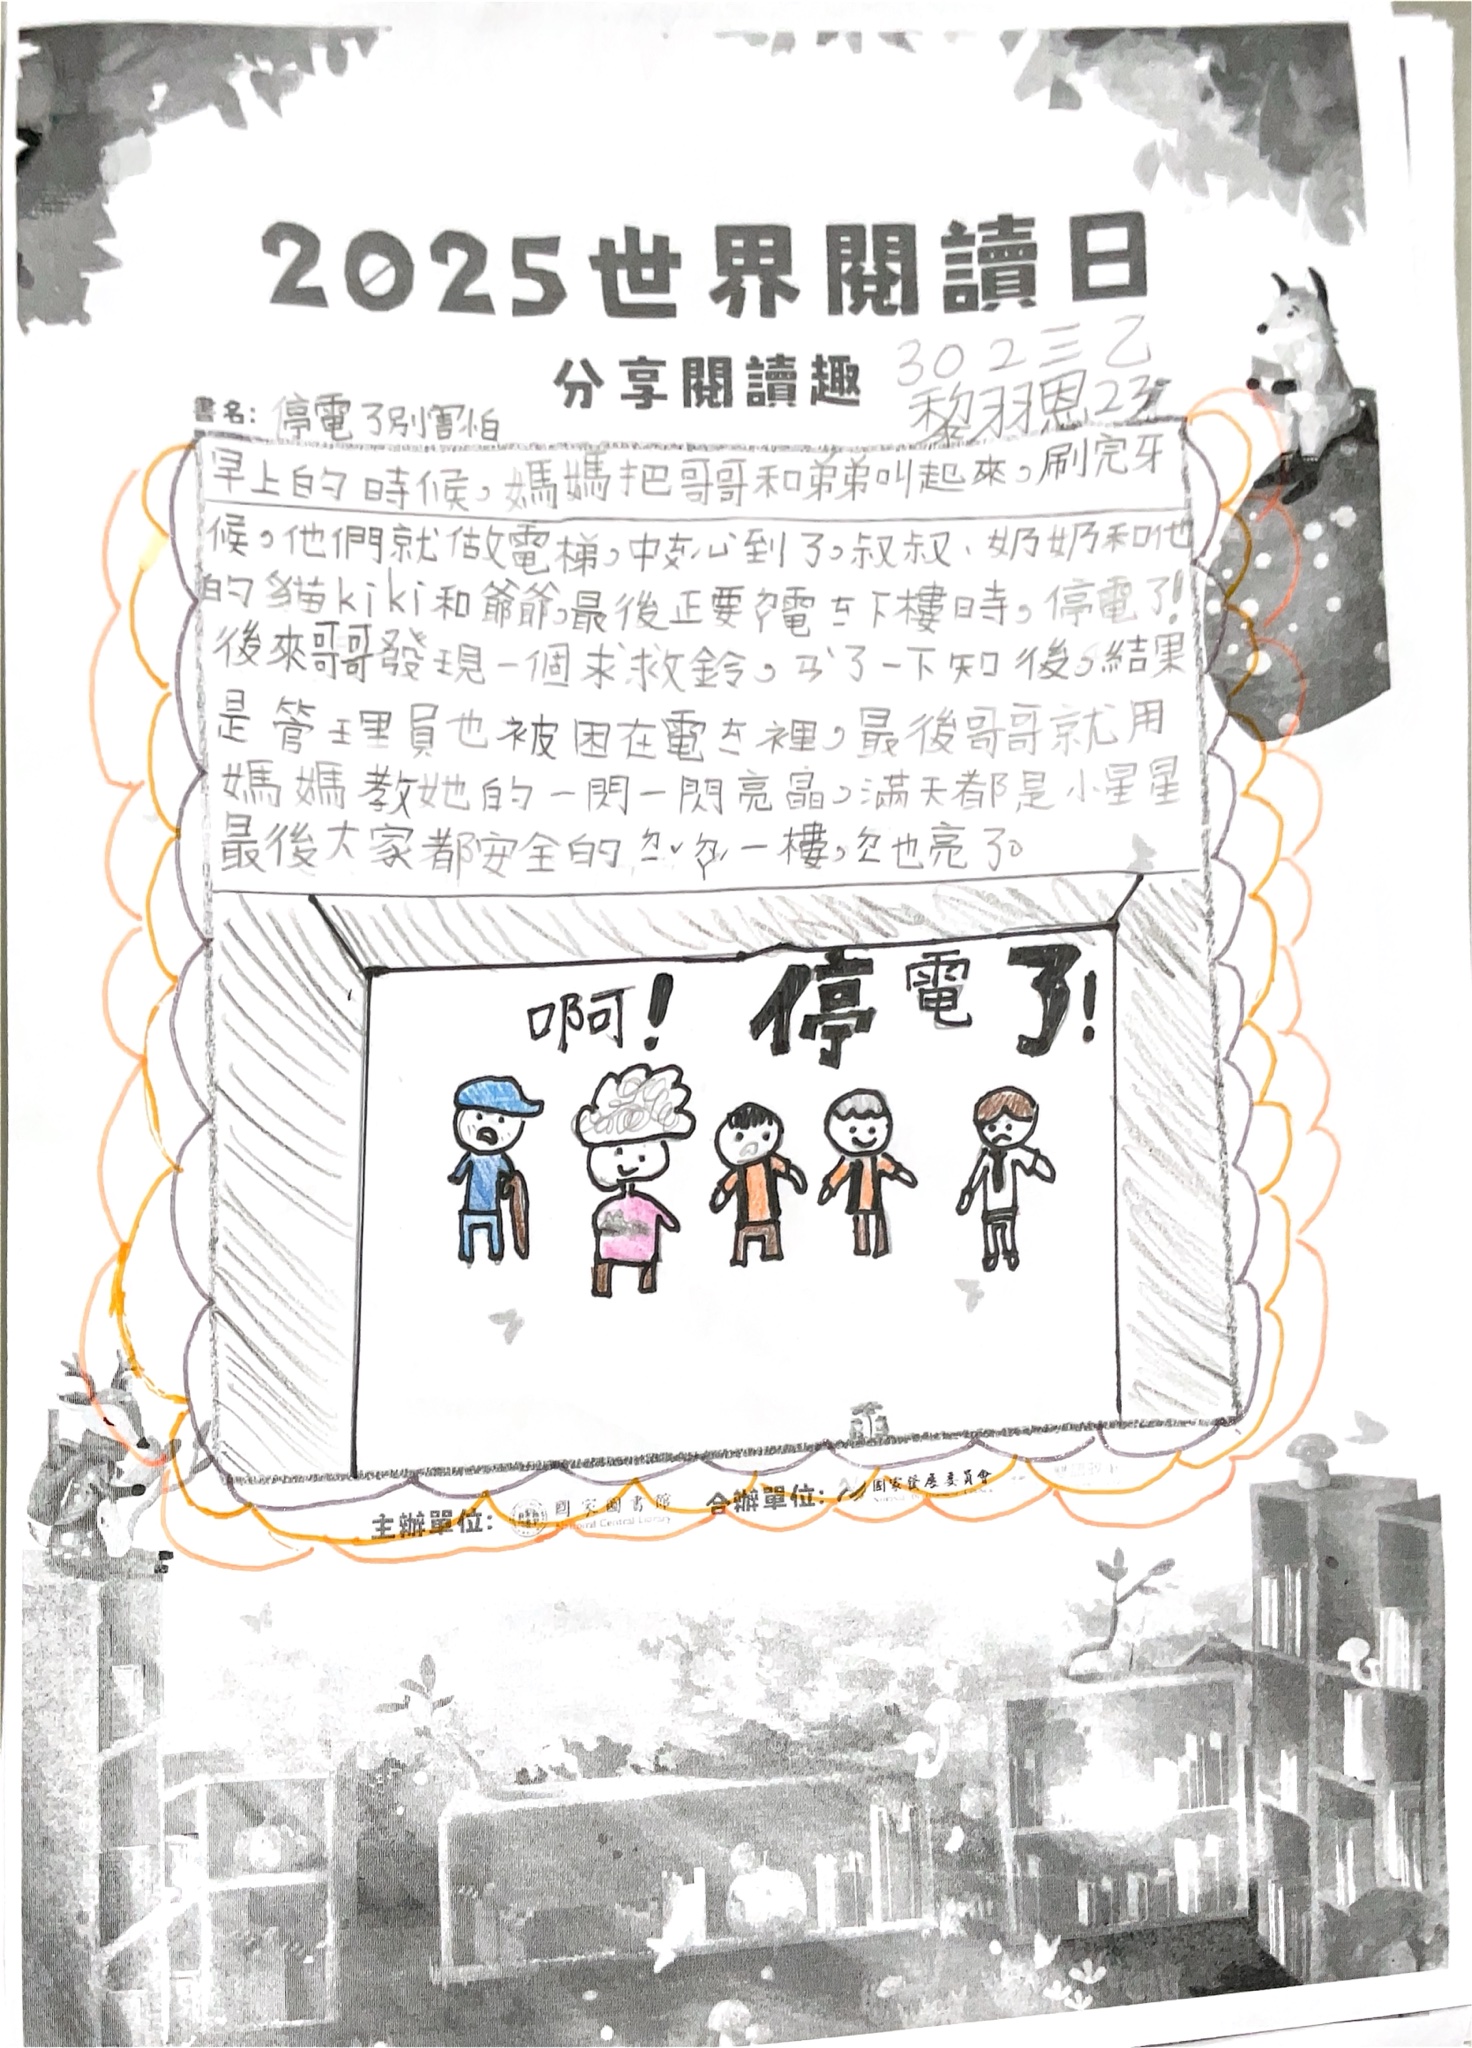 2025世界閱讀日
分享閱讀趣
302三乙
黎羽恩23
書名: 停電了別害怕
早上的時候,媽媽把哥哥和弟弟叫起來,刷完牙
候。他們就做電梯。中途心到了。叔叔、奶奶和他
的貓kiki和爺爺,最後正要電ㄊ下樓時,停電了!
後來哥哥發現一個求救鈴。ㄢˋ了一下知後。結果
是管理員也被困在電ㄊ裡。最後哥哥就用
媽媽教她的一閃一閃亮晶,滿天都是小星星
最後大家都安全的一樓,也亮了。
啊! 停電了!
主辦單位: 國家圖書館 National Central Library 合辦單位: 國家發展委員會